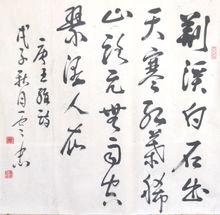 荆溪白石出
天寒红葉稀
山路元無雨空
翠湿人衣
唐王維詩
戊子秋月